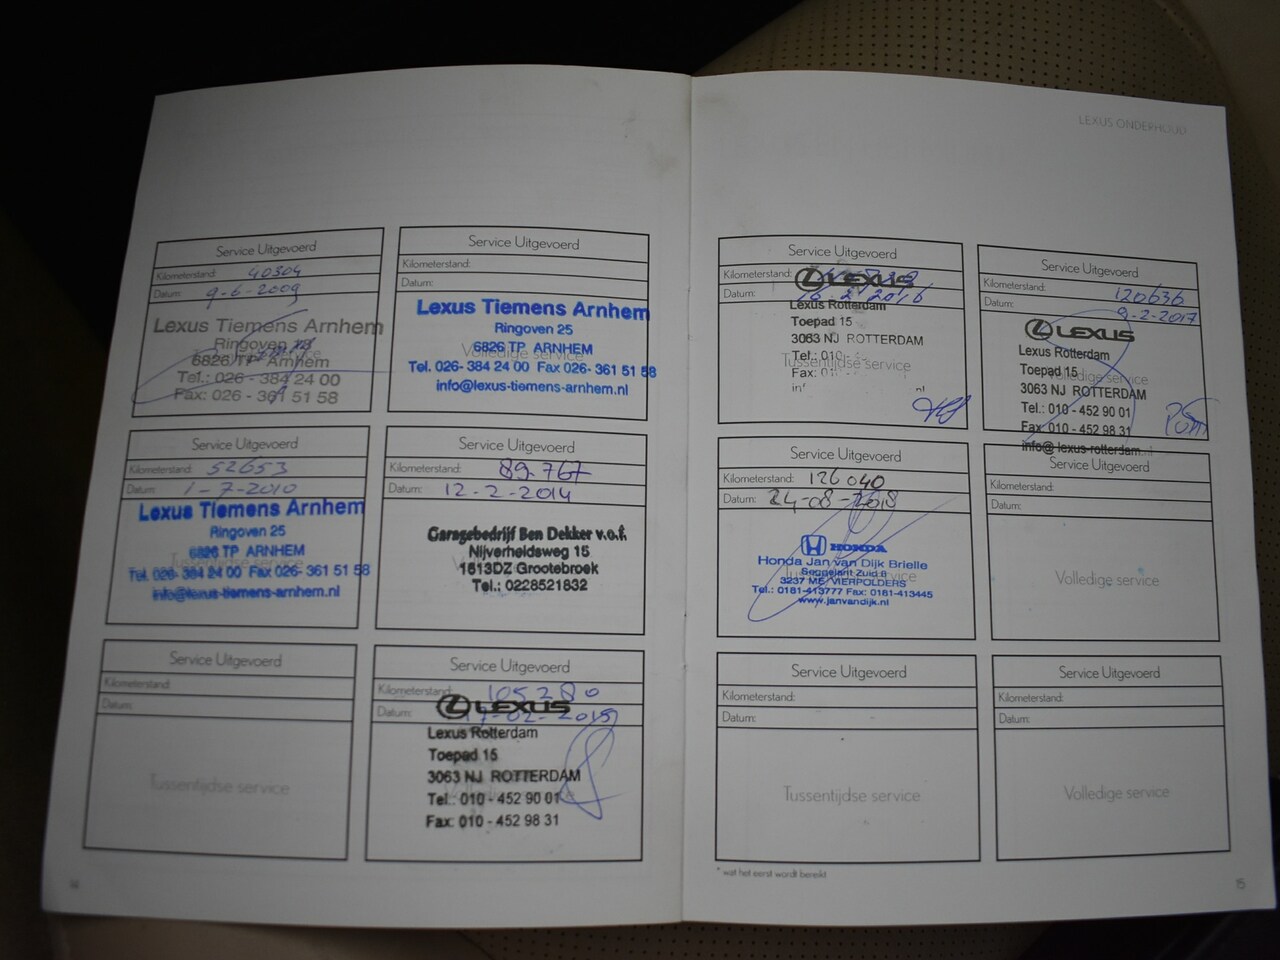 LEXUS ONDERHOUD
Service Uitgevoerd
Kilometerstand: 40304
Datum: 9-6-2009
Lexus Tiemens Arnhem
Ringoven
6826 TP Arnhem
Tel.: 026 - 384 24 00
Fax: 026 - 361 51 58
Service Uitgevoerd
Kilometerstand:
Datum:
Volledige service
Lexus Tiemens Arnhem
Ringoven 25
6826 TP ARNHEM
Tel. 026- 384 24 00 Fax 026- 361 51 58
info@lexus-tiemens-arnhem.nl
Service Uitgevoerd
Kilometerstand: 52653
Datum: 1-7-2010
Lexus Tiemens Arnhem
Ringoven 25
6826 TP ARNHEM
Tel. 026- 384 24 00 Fax 026- 361 51 58
info@lexus-tiemens-arnhem.nl
Service Uitgevoerd
Kilometerstand: 89.767
Datum: 12-2-2014
Garagebedrijf Ben Dekker v.o.f.
Nijverheidsweg 15
1613DZ Grootebroek
Tel.: 0228521832
Service Uitgevoerd
Kilometerstand:
Datum:
Tussentijdse service
Service Uitgevoerd
Kilometerstand: 105280
Datum: 17-02-2015
LEXUS
Lexus Rotterdam
Toepad 15
3063 NJ ROTTERDAM
Tel.: 010 - 452 90 01
Fax: 010 - 452 98 31
14
Service Uitgevoerd
Kilometerstand:
Datum: 16-2-2016
LEXUS
Lexus Rotterdam
Toepad 15
3063 NJ ROTTERDAM
Tel.: 010-
Fax: 01
inf nl
Tussentijdse service
Service Uitgevoerd
Kilometerstand: 120636
Datum: 9-2-2017
LEXUS
Lexus Rotterdam
Toepad 15
Volledige service
3063 NJ ROTTERDAM
Tel.: 010 - 452 90 01
Fax: 010 - 452 98 31
info@lexus-rotterdam.nl
Service Uitgevoerd
Kilometerstand: 126040
Datum: 24-08-2018
HONDA
Honda Jan van Dijk Brielle
Seggelant Zuid 8
3237 ME VIERPOLDERS
Tel.: 0181-413777 Fax: 0181-413445
www.janvandijk.nl
Service Uitgevoerd
Kilometerstand:
Datum:
Volledige service
Service Uitgevoerd
Kilometerstand:
Datum:
Tussentijdse service
Service Uitgevoerd
Kilometerstand:
Datum:
Volledige service
* wat het eerst wordt bereikt
15